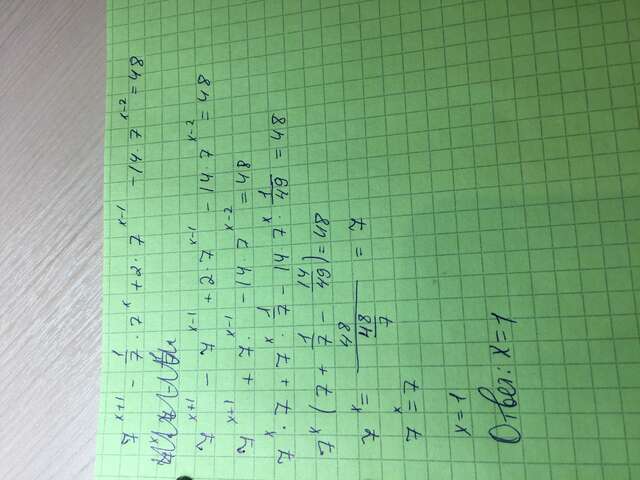 7^{x+1} - \frac{1}{7} \cdot 7^x + 2 \cdot 7^{x-1} - 14 \cdot 7^{x-2} = 48
7^{x+1} - 7^{x-1} + 2 \cdot 7^{x-1} - 14 \cdot 7^{x-2} = 48
7^{x+1} + 7^{x-1} - 14 \cdot 7^{x-2} = 48
7^x \cdot 7 + 7^x \cdot \frac{1}{7} - 14 \cdot 7^x \cdot \frac{1}{49} = 48
7^x (7 + \frac{1}{7} - \frac{14}{49}) = 48
7^x = \frac{48}{\frac{48}{7}} = 7
7^x = 7
x = 1
Ответ: x = 1